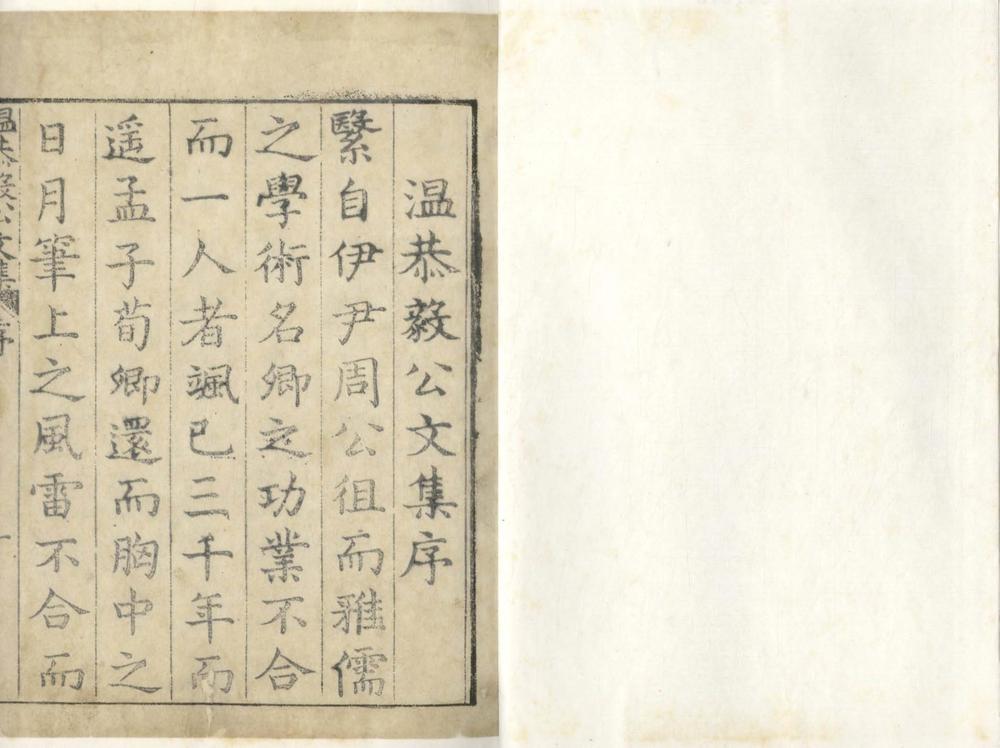 温恭毅公文集序
繄自伊尹周公徂而雅儒
之學術名卿之功業不合
而一人者颯已三千年而
遥孟子荀卿還而胸中之
日月筆上之風雷不合而
温恭毅公文集 序